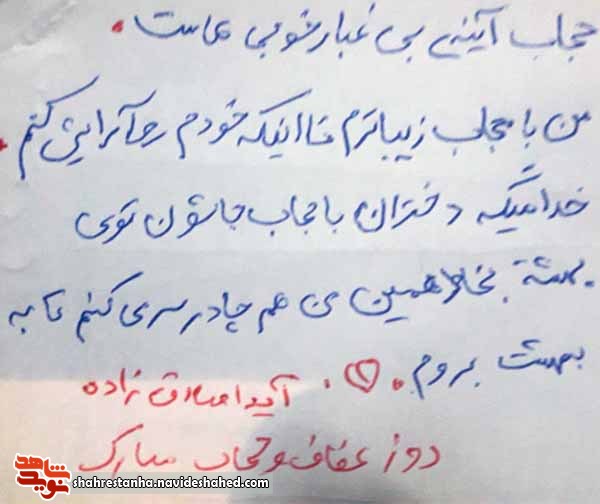 حجاب آینه‌ی بی غبار خوبی هاست.
من با حجاب زیباترم تا اینکه خودم رو آرایش کنم.
خدا میگه دختران با حجاب جاشون توی
بهشته بخاطر همین من هم چادر سری کنم تا به
بهشت بروم.
آیدا صادق زاده
روز عفاف و حجاب مبارک
نوید شاهد
shahrestanha.navideshahed.com